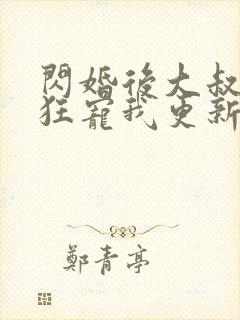 閃婚後大叔
狂寵我更新
鄭青亭